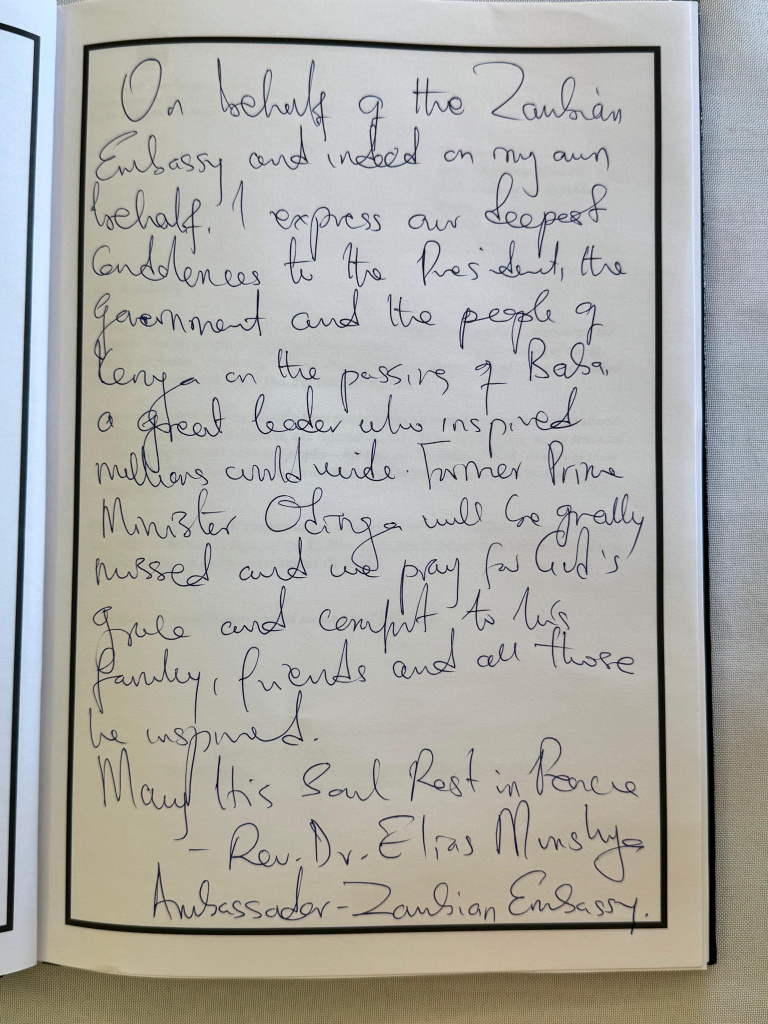 On behalf of the Zambian
Embassy and indeed on my own
behalf, I express our deepest
Condolences to the President, the
Government and the people of
Kenya on the passing of Baba,
a great leader who inspired
millions world wide. Former Prime
Minister Odinga will be greatly
missed and we pray for God's
grace and comfort to his
family, friends and all those
he inspired.
May His Soul Rest in Peace
- Rev. Dr. Elias Munshya
Ambassador - Zambian Embassy.